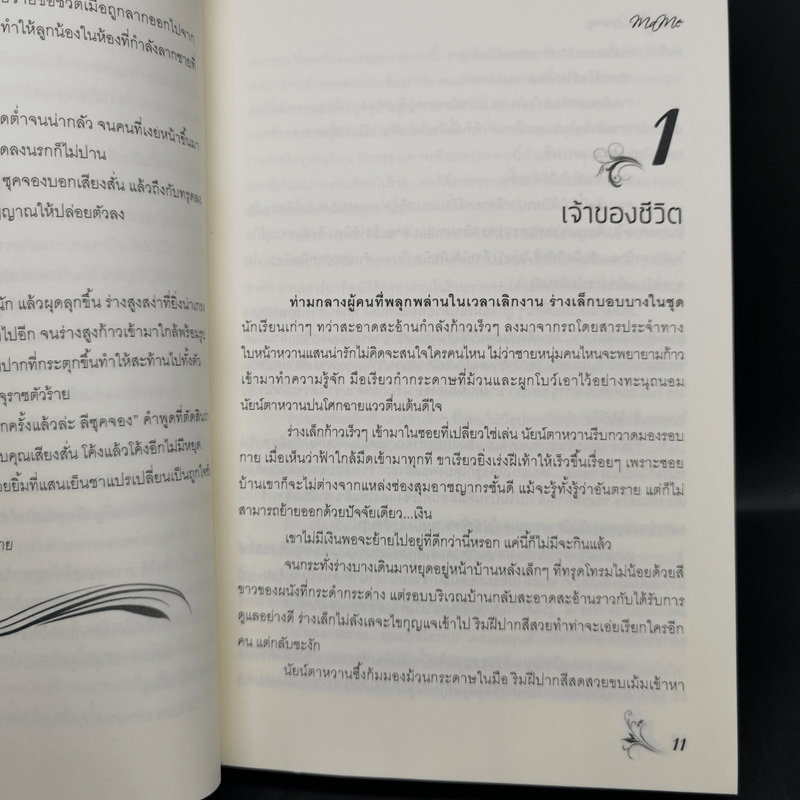 ทำให้ลูกน้องในห้องที่กำลังลากชายที่
ดต่ำจนน่ากลัว จนคนที่เงยหน้าขึ้นมา
ดลงนรกก็ไม่ปาน
ซุคจองบอกเสียงสั่น แล้วถึงกับทรุดลง
ญญาณให้ปล่อยตัวลง
นัก แล้วผุดลุกขึ้น ร่างสูงสง่าที่ยิ่งน่าเกรง
าไปอีก จนร่างสูงก้าวเข้ามาใกล้พร้อม
ปากที่กระตุกขึ้นทำให้สะท้านไปทั้งตัว
จุราชตัวร้าย
กครั้งแล้วล่ะ ลีซุคจอง” คำพูดที่ตัดสิน
บคุณเสียงสั่น โค้งแล้วโค้งอีกไม่มีหยุด
อยยิ้มที่แสนเย็นชาแปรเปลี่ยนเป็นถูกใจ
าย
MaMe
1
เจ้าของชีวิต
ท่ามกลางผู้คนที่พลุกพล่านในเวลาเลิกงาน ร่างเล็กบอบบางในชุด
นักเรียนเก่าๆ ทว่าสะอาดสะอ้านกำลังก้าวเร็วๆ ลงมาจากรถโดยสารประจำทาง
ใบหน้าหวานแสนน่ารักไม่คิดจะสนใจใครคนไหน ไม่ว่าชายหนุ่มคนไหนจะพยายามก้าว
เข้ามาทำความรู้จัก มือเรียวกำกระดาษที่ม้วนและผูกโบว์เอาไว้อย่างทะนุถนอม
นัยน์ตาหวานปนโศกฉายแววตื่นเต้นดีใจ
ร่างเล็กก้าวเร็วๆ เข้ามาในซอยที่เปลี่ยวใช่เล่น นัยน์ตาหวานรีบกวาดมองรอบ
กาย เมื่อเห็นว่าฟ้าใกล้มืดเข้ามาทุกที ขาเรียวยิ่งเร่งฝีเท้าให้เร็วขึ้นเรื่อยๆ เพราะซอย
บ้านเขาก็จะไม่ต่างจากแหล่งซ่องสุมอาชญากรชั้นดี แม้จะรู้ทั้งรู้ว่าอันตราย แต่ก็ไม่
สามารถย้ายออกด้วยปัจจัยเดียว...เงิน
เขาไม่มีเงินพอจะย้ายไปอยู่ที่ดีกว่านี้หรอก แค่นี้ก็ไม่มีจะกินแล้ว
จนกระทั่งร่างบางเดินมาหยุดอยู่หน้าบ้านหลังเล็กๆ ที่ทรุดโทรมไม่น้อยด้วยสี
ขาวของผนังที่กระดำกระด่าง แต่รอบบริเวณบ้านกลับสะอาดสะอ้านราวกับได้รับการ
ดูแลอย่างดี ร่างเล็กไม่ลังเลจะไขกุญแจเข้าไป ริมฝีปากสีสวยทำท่าจะเอ่ยเรียกใครอีก
คน แต่กลับชะงัก
นัยน์ตาหวานซึ้งก้มมองม้วนกระดาษในมือ ริมฝีปากสีสดสวยขบเม้มเข้าหา
11